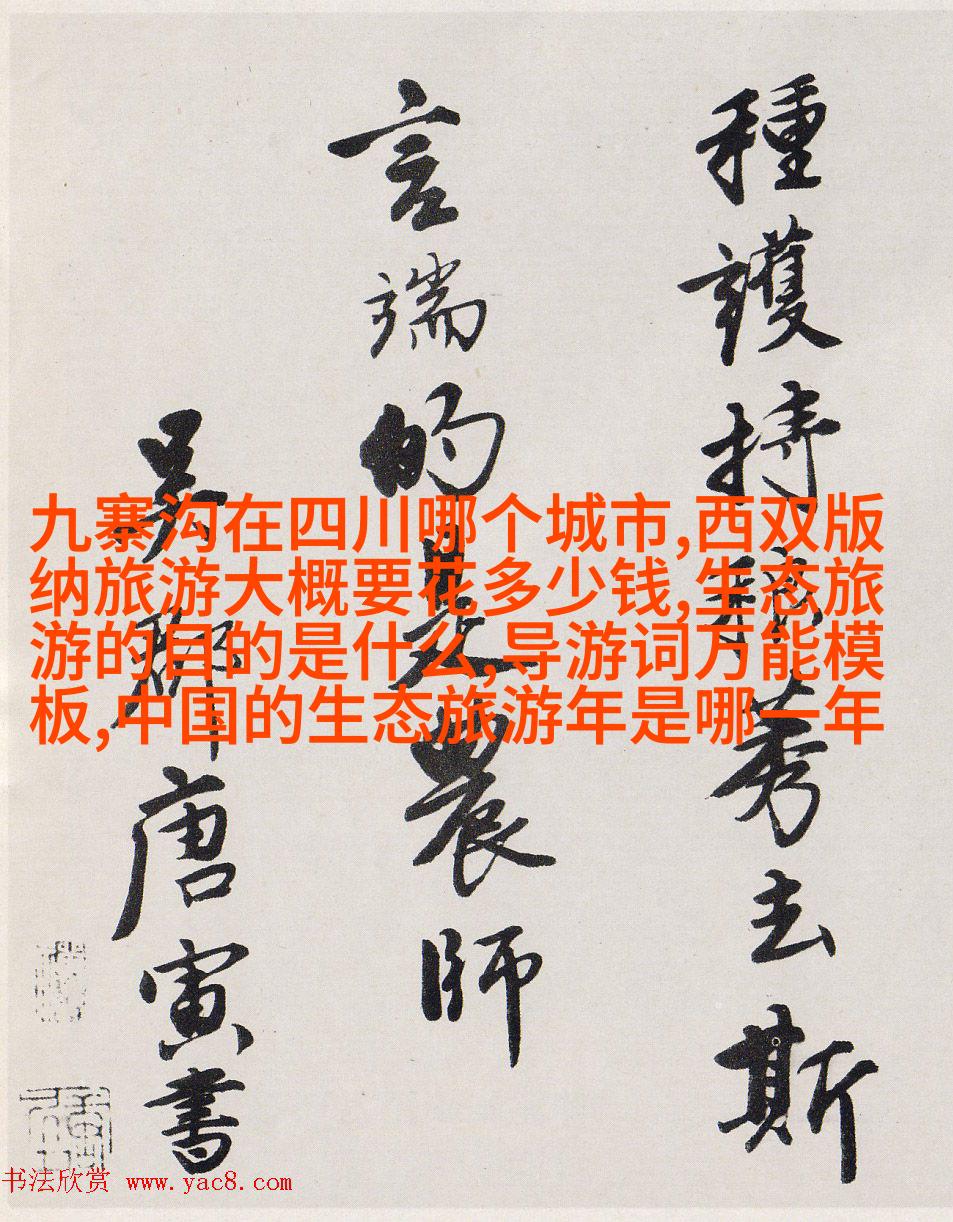 種護持稂莠去斯
言端的是農師
吳郡唐寅書
九寨沟在四川哪个城市,西双版
纳旅游大概要花多少钱,生态旅
游的目的是什么,导游词万能模
板,中国的生态旅游年是哪一年
书法欣赏 www.yac8.com